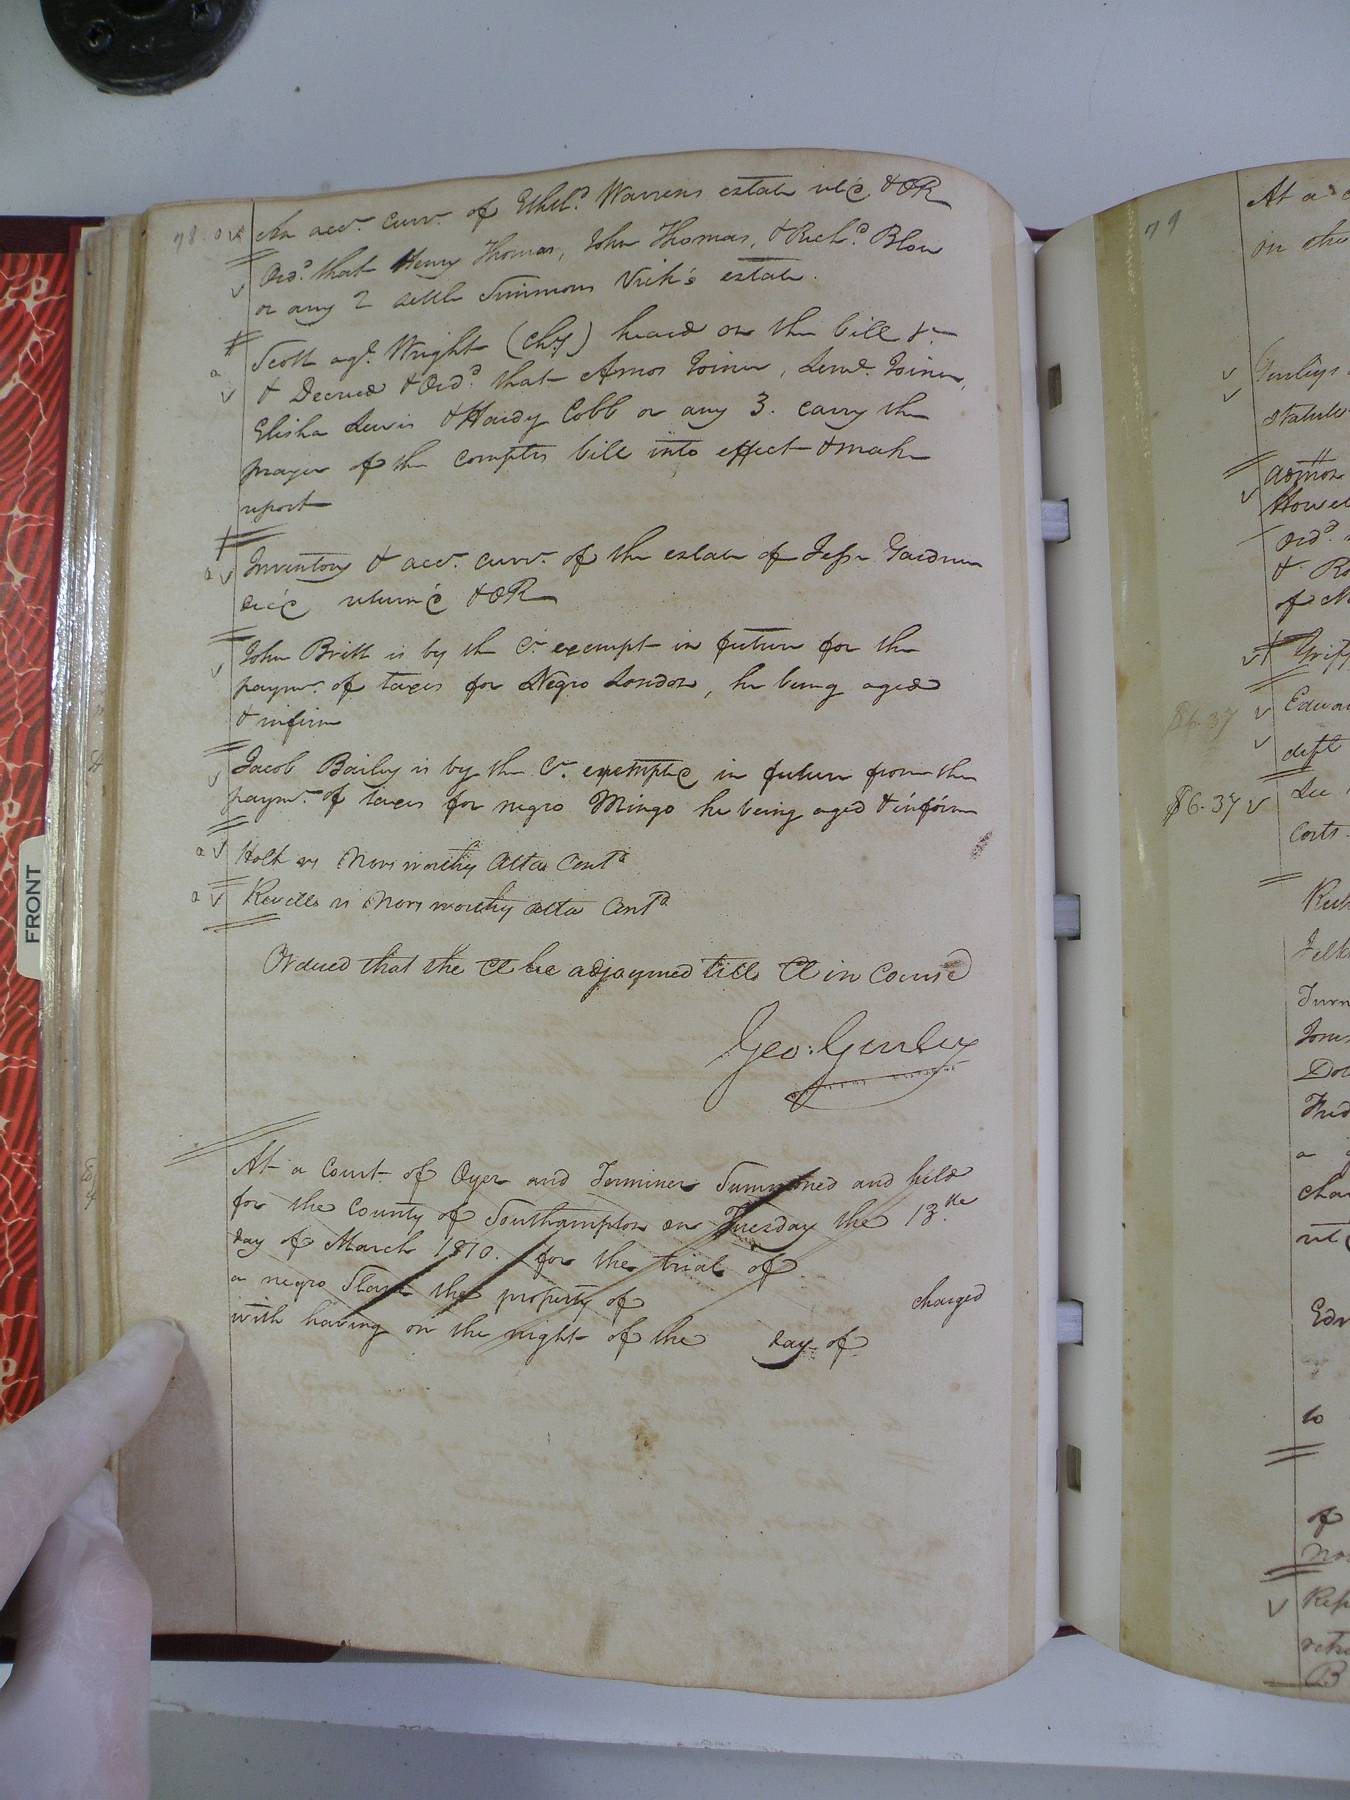 78.
An acct. curt. of Ethel.d Warrens estate ret.d & OR
Ord.d that Henry Thomas, John Thomas, & Rich.d Blow
or any 2 settle Simmons Vick's estate.
Scott ag.t Wright (Chy) heard on the bill &c
& Decreed & Ord.d that Amos Joiner, Lem.l Joiner,
Elisha Lewis & Hardy Cobb or any 3. carry the
prayer of the complts bill into effect & make
report
Inventory & acct. curt. of the estate of Jesse Gardner
dec'd return'd & OR
John Britt is by the Ct. exempt in future for the
paymt. of taxes for Negro London, he being aged
& infirm
Jacob Bailey is by the Ct. exempted in future from the
paymt. of taxes for negro Mingo he being aged & infirm
Holt vs Norsworthy atta Cont.d
Revells vs Norsworthy atta Cont.d
Ordered that the Ct be adjourned till Ct in Course
Geo: Gurley
At a Court of Oyer and Terminer Summoned and held
for the County of Southampton on Tuesday the 13.th
day of March 1810. for the trial of
a negro Slave the property of charged
with having on the night of the day of
FRONT
79
At a
in
statute
admor
Howel
Ord.d
&
of
Edwa
$6.37
deft
$6.37
Costs
Turn
a
cha
to
of